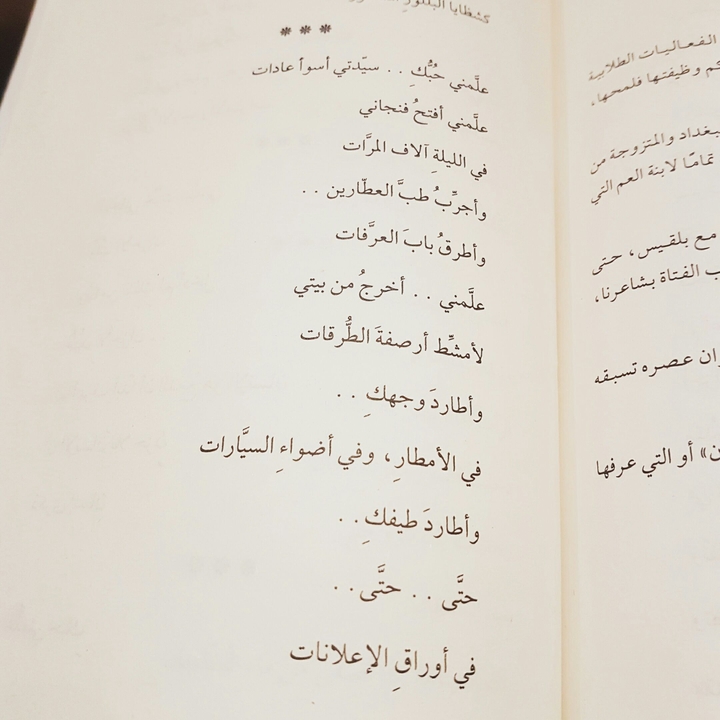 كشظايا البللور
***
علَّمني حُبُّكِ . . سيّدتي أسوأ عادات
علَّمني أفتحُ فنجاني
في الليلةِ آلاف المرَّات
وأجرِّبُ طبَّ العطّارين . .
وأطرقُ بابَ العرَّفات
علَّمني . . أخرجُ من بيتي
لأمشِّط أرصفةَ الطُّرقات
وأطاردَ وجهكِ . .
في الأمطارِ، وفي أضواءِ السيَّارات
وأطاردَ طيفكِ . .
حتَّى . . حتَّى . .
في أوراقِ الإعلانات
الفعاليات الطلابية
وظيفتها فلمحها،
بغداد والمتزوجة من
تمامًا لابنة العم التي
مع بلقيس، حتى
الفتاة بشاعرنا،
عصره تسبقه
» أو التي عرفها